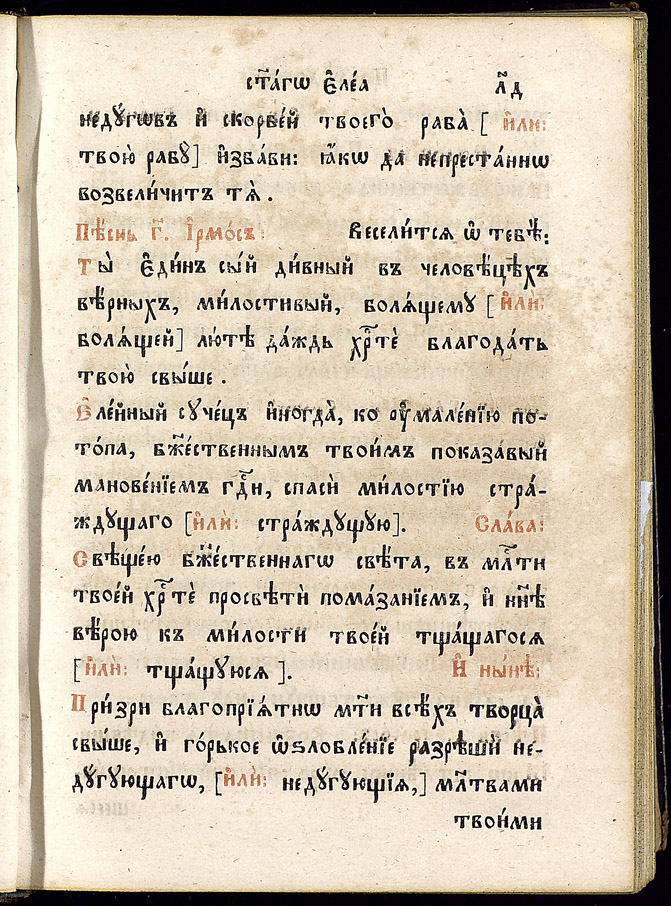 ст҃а́гѡ є҆ле́а л҃д
недꙋ́гѡвъ и҆ скорбе́й твоегѡ̀ раба̀ [ и҆лѝ:
твою̀ рабꙋ̀] и҆зба́ви: ꙗ҆́кѡ да непреста́ннѡ
возвели́читъ тѧ̀.
Пѣ́снь г҃. І҆рмо́съ: Весели́тсѧ ѡ҆ тебѣ̀:
Ты̀ є҆ди́нъ сы́й ди́вный въ человѣ́цѣхъ
вѣ́рныхъ, ми́лостивый, болѧ́щемꙋ [ и҆лѝ:
болѧ́щей] лю́тѣ да́ждь хрⷭ҇тѐ благода́ть
твою̀ свы́ше.
Е҆ле́йный сꙋче́цъ и҆ногда̀, ко ᲂу҆мале́нїю по-
то́па, бжⷭ҇е́ственнымъ твои́мъ показа́вый
манове́нїемъ гдⷭ҇и, спасѝ ми́лостїю стра́-
ждꙋщаго [и҆лѝ: стра́ждꙋщꙋю]. Сла́ва:
Свѣще́ю бжⷭ҇е́ственнагѡ свѣ́та, въ млⷭ҇ти
твое́й хрⷭ҇тѐ просвѣтѝ пома́занїемъ, и҆ нн҃ѣ
вѣ́рою къ ми́лости твое́й тща́щагосѧ
[и҆лѝ: тща́щꙋюсѧ ]. И҆ ны́нѣ:
При́зри благопрїѧ́тнѡ мт҃и всѣ́хъ творца̀
свы́ше, и҆ го́рькое ѡ҆ѕлобле́нїе разрѣшѝ не-
дꙋ́гꙋющагѡ, [и҆лѝ: недꙋ́гꙋющїѧ,] мл҃твами
твои́ми